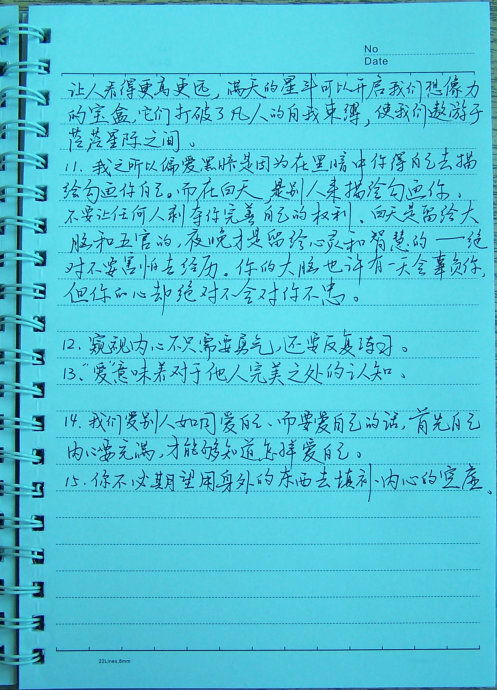 No
Date
让人看得更高更远，满天的星斗可以开启我们想像力
的宝盒，它们打破了凡人的自我束缚，使我们遨游于
茫茫星际之间。
11. 我之所以偏爱黑暗是因为在黑暗中你得自己去描
绘勾画你自己。而在白天，是别人来描绘勾画你。
不要让任何人剥夺你完善自己的权利。白天是留给大
脑和五官的，夜晚才是留给心灵和智慧的——绝
对不要害怕去经历。你的大脑也许有一天会辜负你，
但你的心却绝对不会对你不忠。
12. 窥视内心不只需要勇气，还要反复练习。
13. “爱”意味着对于他人完美之处的认知。
14. 我们爱别人如同爱自己、而要爱自己的话，首先自己
内心要充满，才能够知道怎样爱自己。
15. 你不必期望用身外的东西去填补内心的空虚。
22Lines,8mm